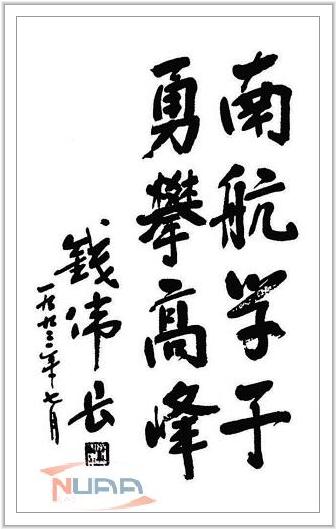 南航学子
勇攀高峰
钱伟长
一九九二年七月
NUAA